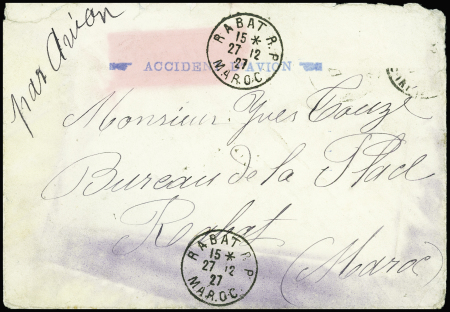 par avion
RABAT R.P
15 *
27 12
27
MAROC
ACCIDENT D'AVION
Monsieur Yves Touzé
Bureau de la Place
Rabat
(Maroc)
RABAT R.P
15 *
27 12
27
MAROC